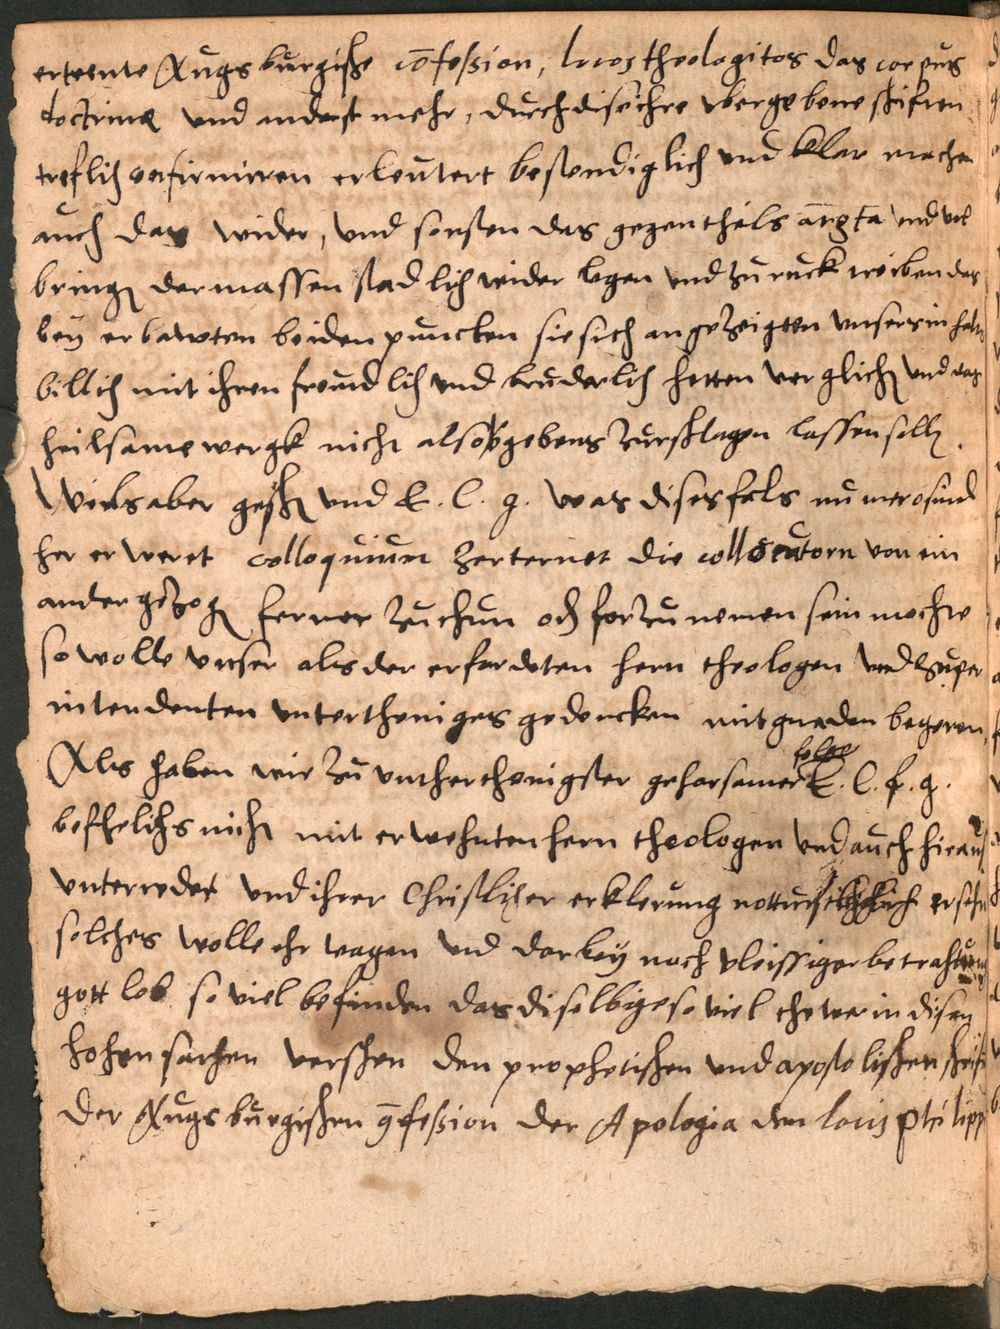 erteente Augsburgische cōfession, locos theologicos das corpus
doctrinæ und anderst mehr, durch dise ihre ubergebene schriften
treflich confirmiren erleutert bestendiglich und klar machen
auch das wider, und sonsten das gegentheils arg und vol
bringen dermassen stadlich wider legen und zuruck treiben das
bey erbawten beiden puncken sie sich angezeigten unsers in
billich mit ihren freundlich und bruderlich hetten verglichen und das
heilsame wergk nicht also vergebens zurschlagen lassen sollen.
Weils aber geschen und E. l. g. was dises fals numero sind
her erweret colloquium zertrenet die collocutorn von ein
ander gezogen ferner zu thun oder forzunemen sein mochte
so wolle unser als der erforderten hern theologen und super
intendenten untertheniges gedencken mit gnaden begeren
Als haben wir zu untherthenigster gehorsamer folge E. l. f. g.
beffelichs nicht mit erwehnten hern theologen und auch hieraus
unterredet und ihrer Christlicher erklerung ersehn
solches wolle ehr wagen und darbey nach vleissiger betrachtung
gott lob so viel befinden das diselbige so viel ehr wer in disen
hohen sachen verschen den prophetischen und apostolischen schrift
der Augsburgischen cōfession der Apologia den locis philipp